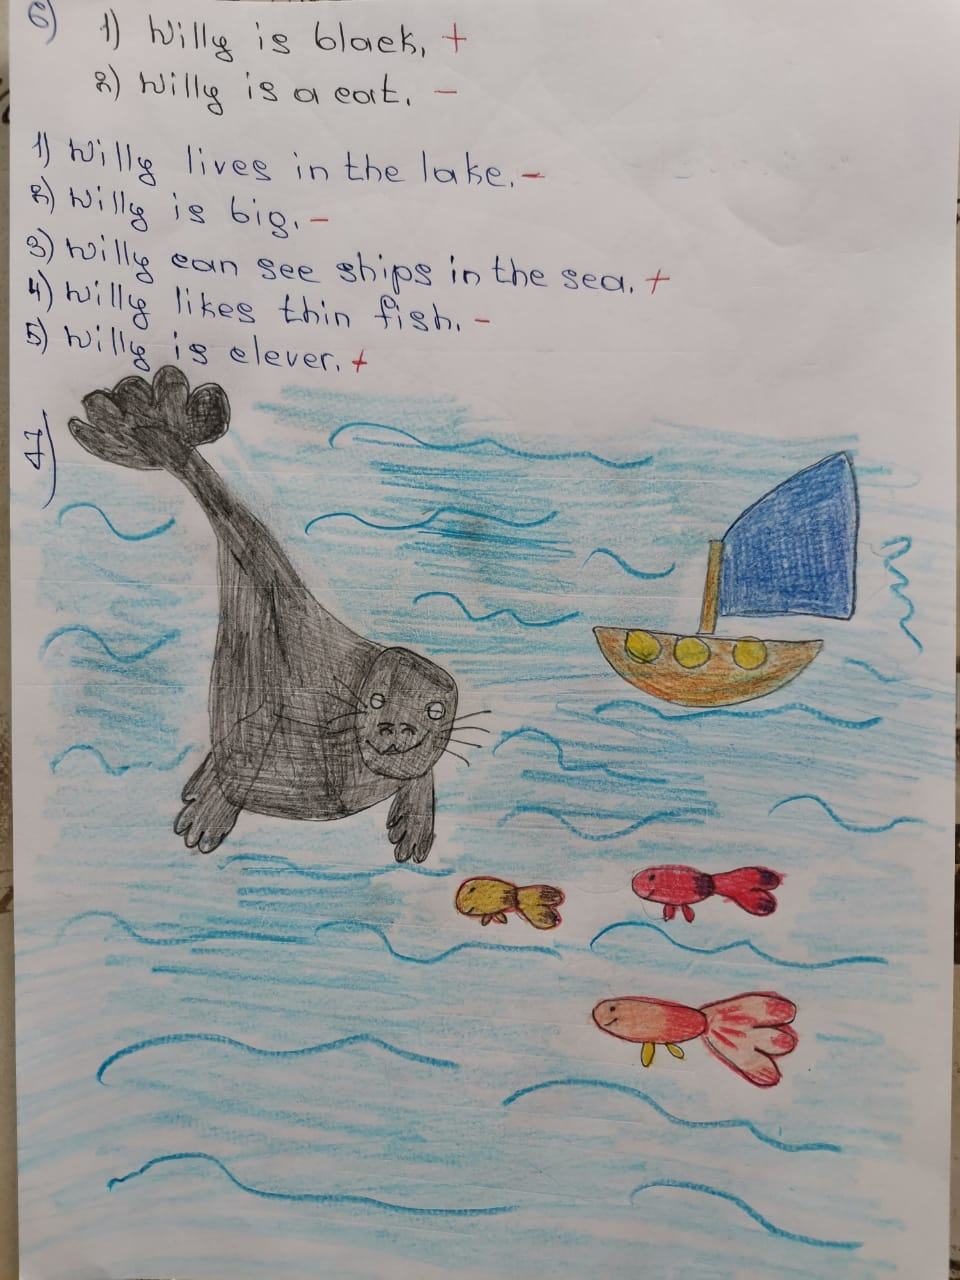 6) 1) Willy is black. +
2) Willy is a cat. -
1) Willy lives in the lake. -
2) Willy is big. -
3) Willy can see ships in the sea. +
4) Willy likes thin fish. -
5) Willy is clever. +
7)